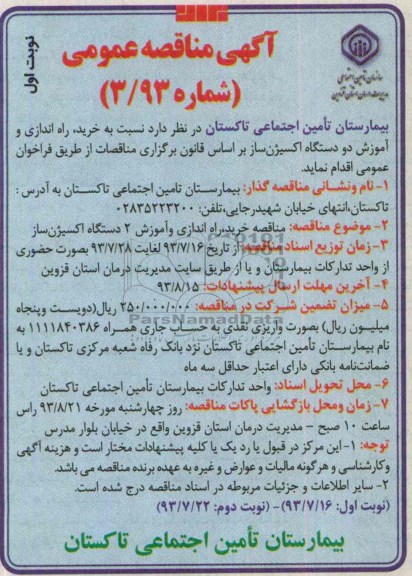 نوبت اول
آگهی مناقصه عمومی
(شماره ۳/۹۳)
سازمان تأمین اجتماعی
مدیریت درمان استان قزوین
بیمارستان تأمین اجتماعی تاکستان در نظر دارد نسبت به خرید، راه اندازی و
آموزش دو دستگاه اکسیژن‌ساز بر اساس قانون برگزاری مناقصات از طریق فراخوان
عمومی اقدام نماید.
۱- نام ونشانی مناقصه گذار: بیمارستان تامین اجتماعی تاکستان به آدرس :
تاکستان،انتهای خیابان شهیدرجایی،تلفن: ۰۲۸۳۵۲۲۳۲۰۰
۲- موضوع مناقصه: مناقصه خریدراه اندازی وآموزش ۲ دستگاه اکسیژن‌ساز
۳- زمان توزیع اسناد مناقصه:از تاریخ ۹۳/۷/۱۶ لغایت ۹۳/۷/۲۸ بصورت حضوری
از واحد تدارکات بیمارستان و یا از طریق سایت مدیریت درمان استان قزوین
۴- آخرین مهلت ارسال پیشنهادات: ۹۳/۸/۱۵
۵- میزان تضمین شرکت در مناقصه: ۲۵۰/۰۰۰/۰۰۰ ریال(دویست وپنجاه
میلیون ریال) بصورت واریزی نقدی به حساب جاری همراه ۱۱۱۱۸۴۰۳۸۶ به
نام بیمارستان تأمین اجتماعی تاکستان نزد بانک رفاه شعبه مرکزی تاکستان و یا
ضمانت‌نامه بانکی دارای اعتبار حداقل سه ماه
۶- محل تحویل اسناد: واحد تدارکات بیمارستان تأمین اجتماعی تاکستان
۷- زمان ومحل بازگشایی پاکات مناقصه: روز چهارشنبه مورخه ۹۳/۸/۲۱ راس
ساعت ۱۰ صبح - مدیریت درمان استان قزوین واقع در خیابان بلوار مدرس
توجه: ۱-این مرکز در قبول یا رد یک یا کلیه پیشنهادات مختار است و هزینه آگهی
وکارشناسی و هرگونه مالیات و عوارض و غیره به عهده برنده مناقصه می باشد.
۲- سایر اطلاعات و جزئیات مربوطه در اسناد مناقصه درج شده است.
(نوبت اول: ۹۳/۷/۱۶)- (نوبت دوم: ۹۳/۷/۲۲)
بیمارستان تأمین اجتماعی تاکستان
ParsNamadData